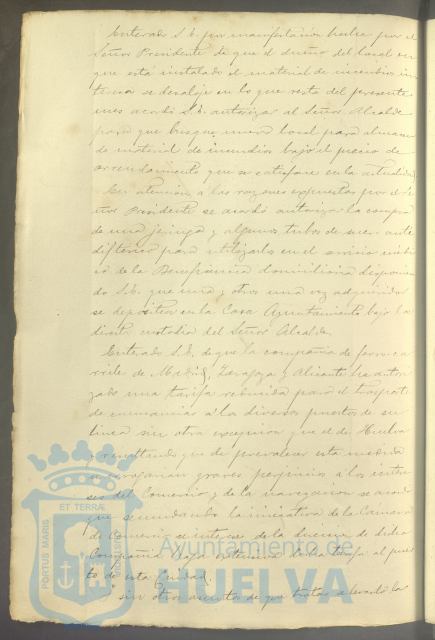 Enterado S.E. por manifestación hecha por el
Señor Presidente de que el dueño del local en
que está instalado el material de incendios in
teresa se desaloje en lo que resta del presente
mes acordó S.E. autorizar al Señor Alcalde
para que busque nuevo local para almacen
de material de incendios bajo el precio de
arrendamiento que se satisface en la actualidad
En atención a las razones expuestas por el Se
ñor Presidente se acordó autorizar la compra
de una jeringa y algunos tubos de suero anti
diftérico para utilizarlos en el servicio
de la Beneficencia domiciliaria disponien
do S.E. que una y otros una vez adquiridos
se depositen en la Casa Ayuntamiento bajo la
directa custodia del Señor Alcalde.
Enterado S.E. de que la compañía de ferroca
rriles de Madrid, Zaragoza y Alicante ha autori
zado una tarifa reducida para el trasporte
de mercancias a los diversos puertos de su
línea sin otra excepción que el de Huelva
y resultando que de prevalecer esta medida
se graves perjuicios a los intere
ses del Comercio y de la navegación se acordó
que secundando la iniciativa de la Camara
de Comercio se interese de la Direccion de dicha
Compañía haga extensiva dicha tarifa al puer
to de esta Ciudad.
Y sin otros asuntos de que tratar se levantó la
PORTUS MARIS
ET TERRAE
CUSTODIA
Ayuntamiento de
HUELVA